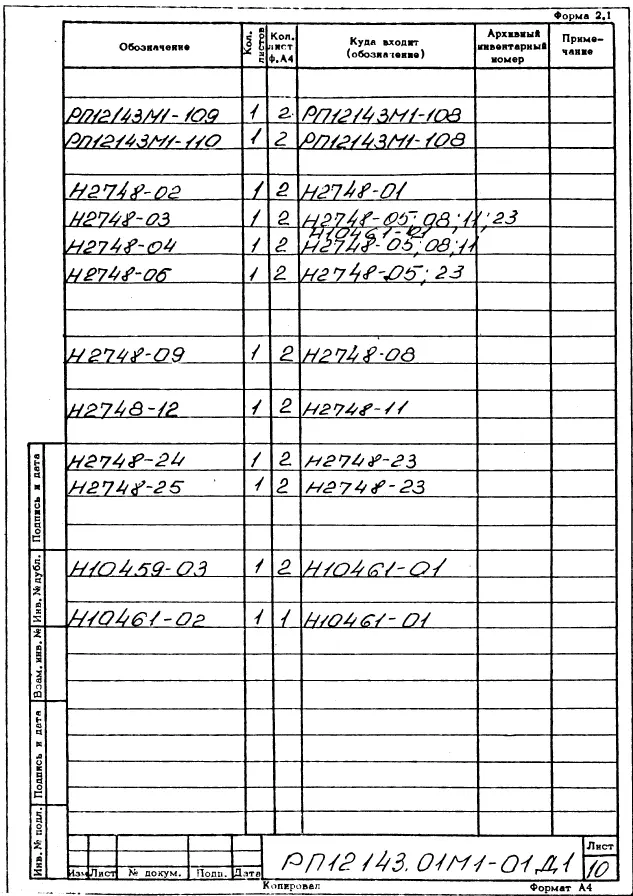 Форма 2.1
Обозначение Кол. листов Кол. лист ф.А4 Куда входит (обозначение) Архивный инвентарный номер Приме- чание
РП12143М1-109 1 2 РП12143М1-108
РП12143М1-110 1 2 РП12143М1-108
Н2748-02 1 2 Н2748-01
Н2748-03 1 2 Н2748-05; 08; 11; 23
Н10461-01
Н2748-04 1 2 Н2748-05; 08; 11
Н2748-06 1 2 Н2748-05; 23
Н2748-09 1 2 Н2748-08
Н2748-12 1 2 Н2748-11
Н2748-24 1 2 Н2748-23
Н2748-25 1 2 Н2748-23
Н10459-03 1 2 Н10461-01
Н10461-02 1 1 Н10461-01
Инв. № подл. Подпись и дата Взам. инв. № Инв. № дубл. Подпись и дата
РП12143.01М1-01Д1
Лист
10
Изм Лист № докум. Подп. Дата
Копировал Формат А4